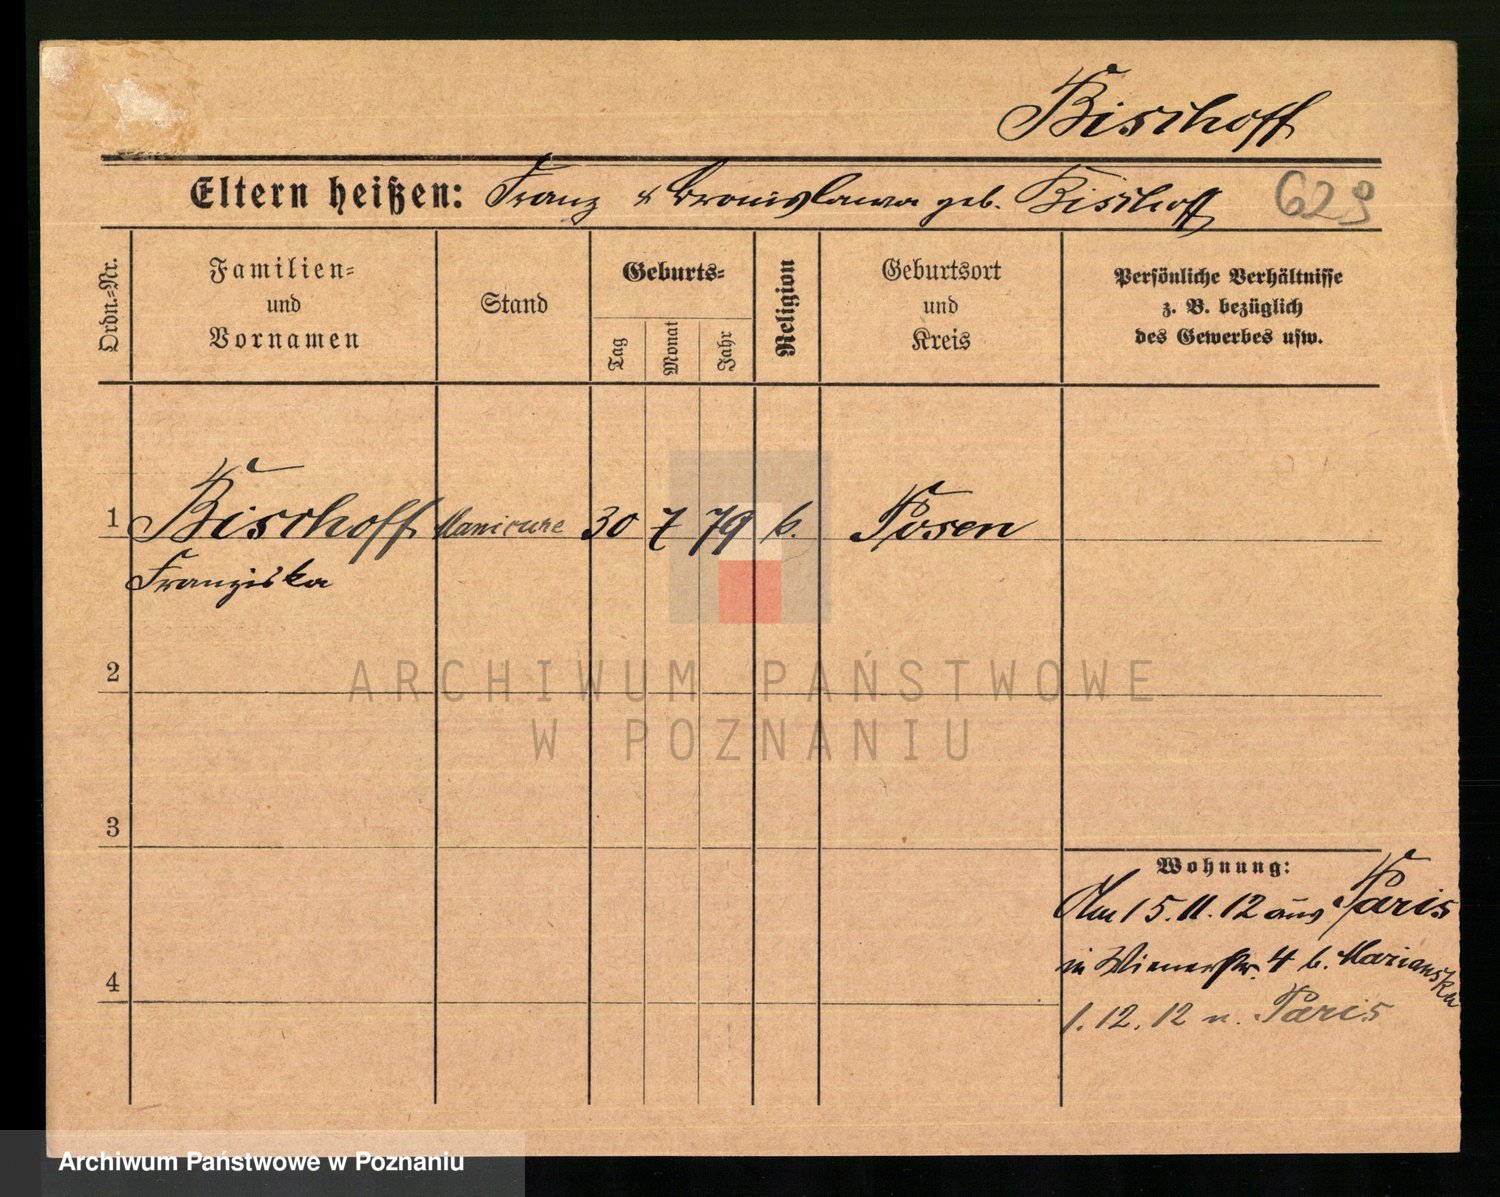 Bischoff
Eltern heißen: Franz u Bronislawa geb. Bischoff 629
Ordn.=Nr.
Familien=
und
Vornamen
Stand
Geburts=
Tag
Monat
Jahr
Religion
Geburtsort
und
Kreis
Persönliche Verhältnisse
z. B. bezüglich
des Gewerbes usw.
1 Bischoff Manicure 30 7 79 k. Posen
Franziska
2
ARCHIWUM PAŃSTWOWE
W POZNANIU
3
Wohnung:
Am 15.11.12 aus Paris
in Wienerstr. 4 b. Marianska
4
1.12.12 n. Paris
Archiwum Państwowe w Poznaniu